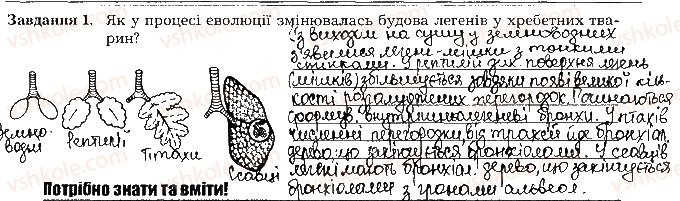 Завдання 1. Як у процесі еволюції змінювалась будова легенів у хребетних тва-
рин?
Із виходом на сушу у земноводних
з'явилися легені-мішки з тонкими
стінками. У рептилій дих. поверхня легень
(мішків) збільшується завдяки появі великої кіль-
кості розгалужених перегородок. Починаються
формув. внутрішньолегеневі бронхи. У птахів
численні перегородки, від трахей йде бронхіал.
дерево, що закінчується бронхіолами. У ссавців
легені мають бронхіал. дерево, що закінчується
бронхіолами з гронами альвеол.
Земно-
водні
Рептилії
Птахи
Ссавці
Потрібно знати та вміти!